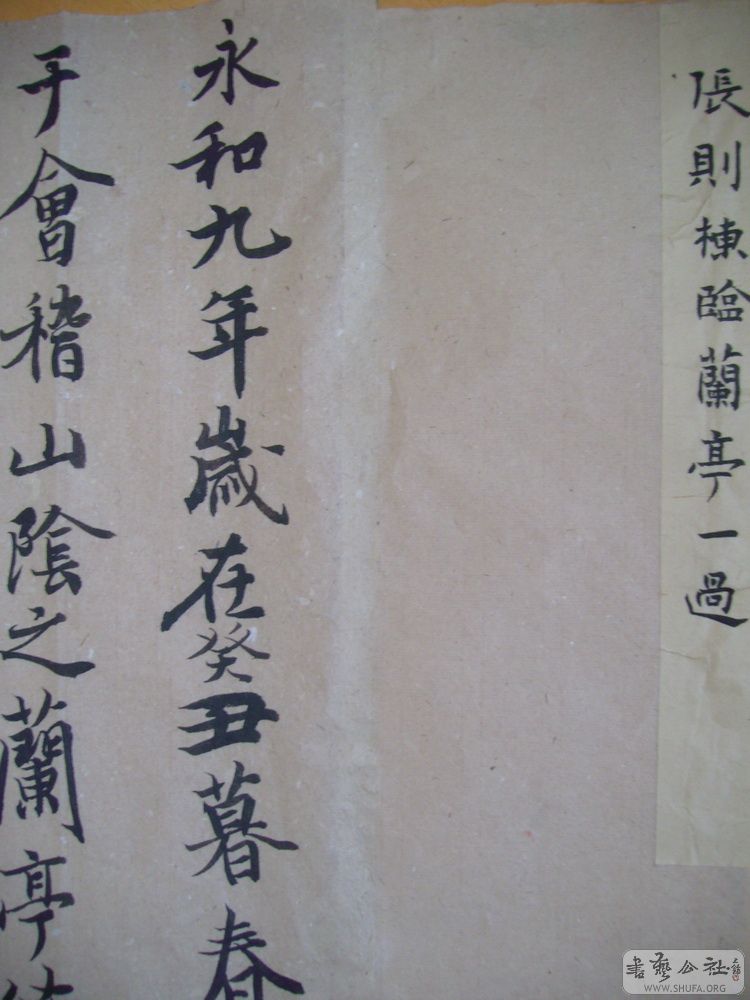 張則棟臨蘭亭一過
永和九年歲在癸丑暮春
于會稽山陰之蘭亭
書藝公社
WWW.SHUFA.ORG